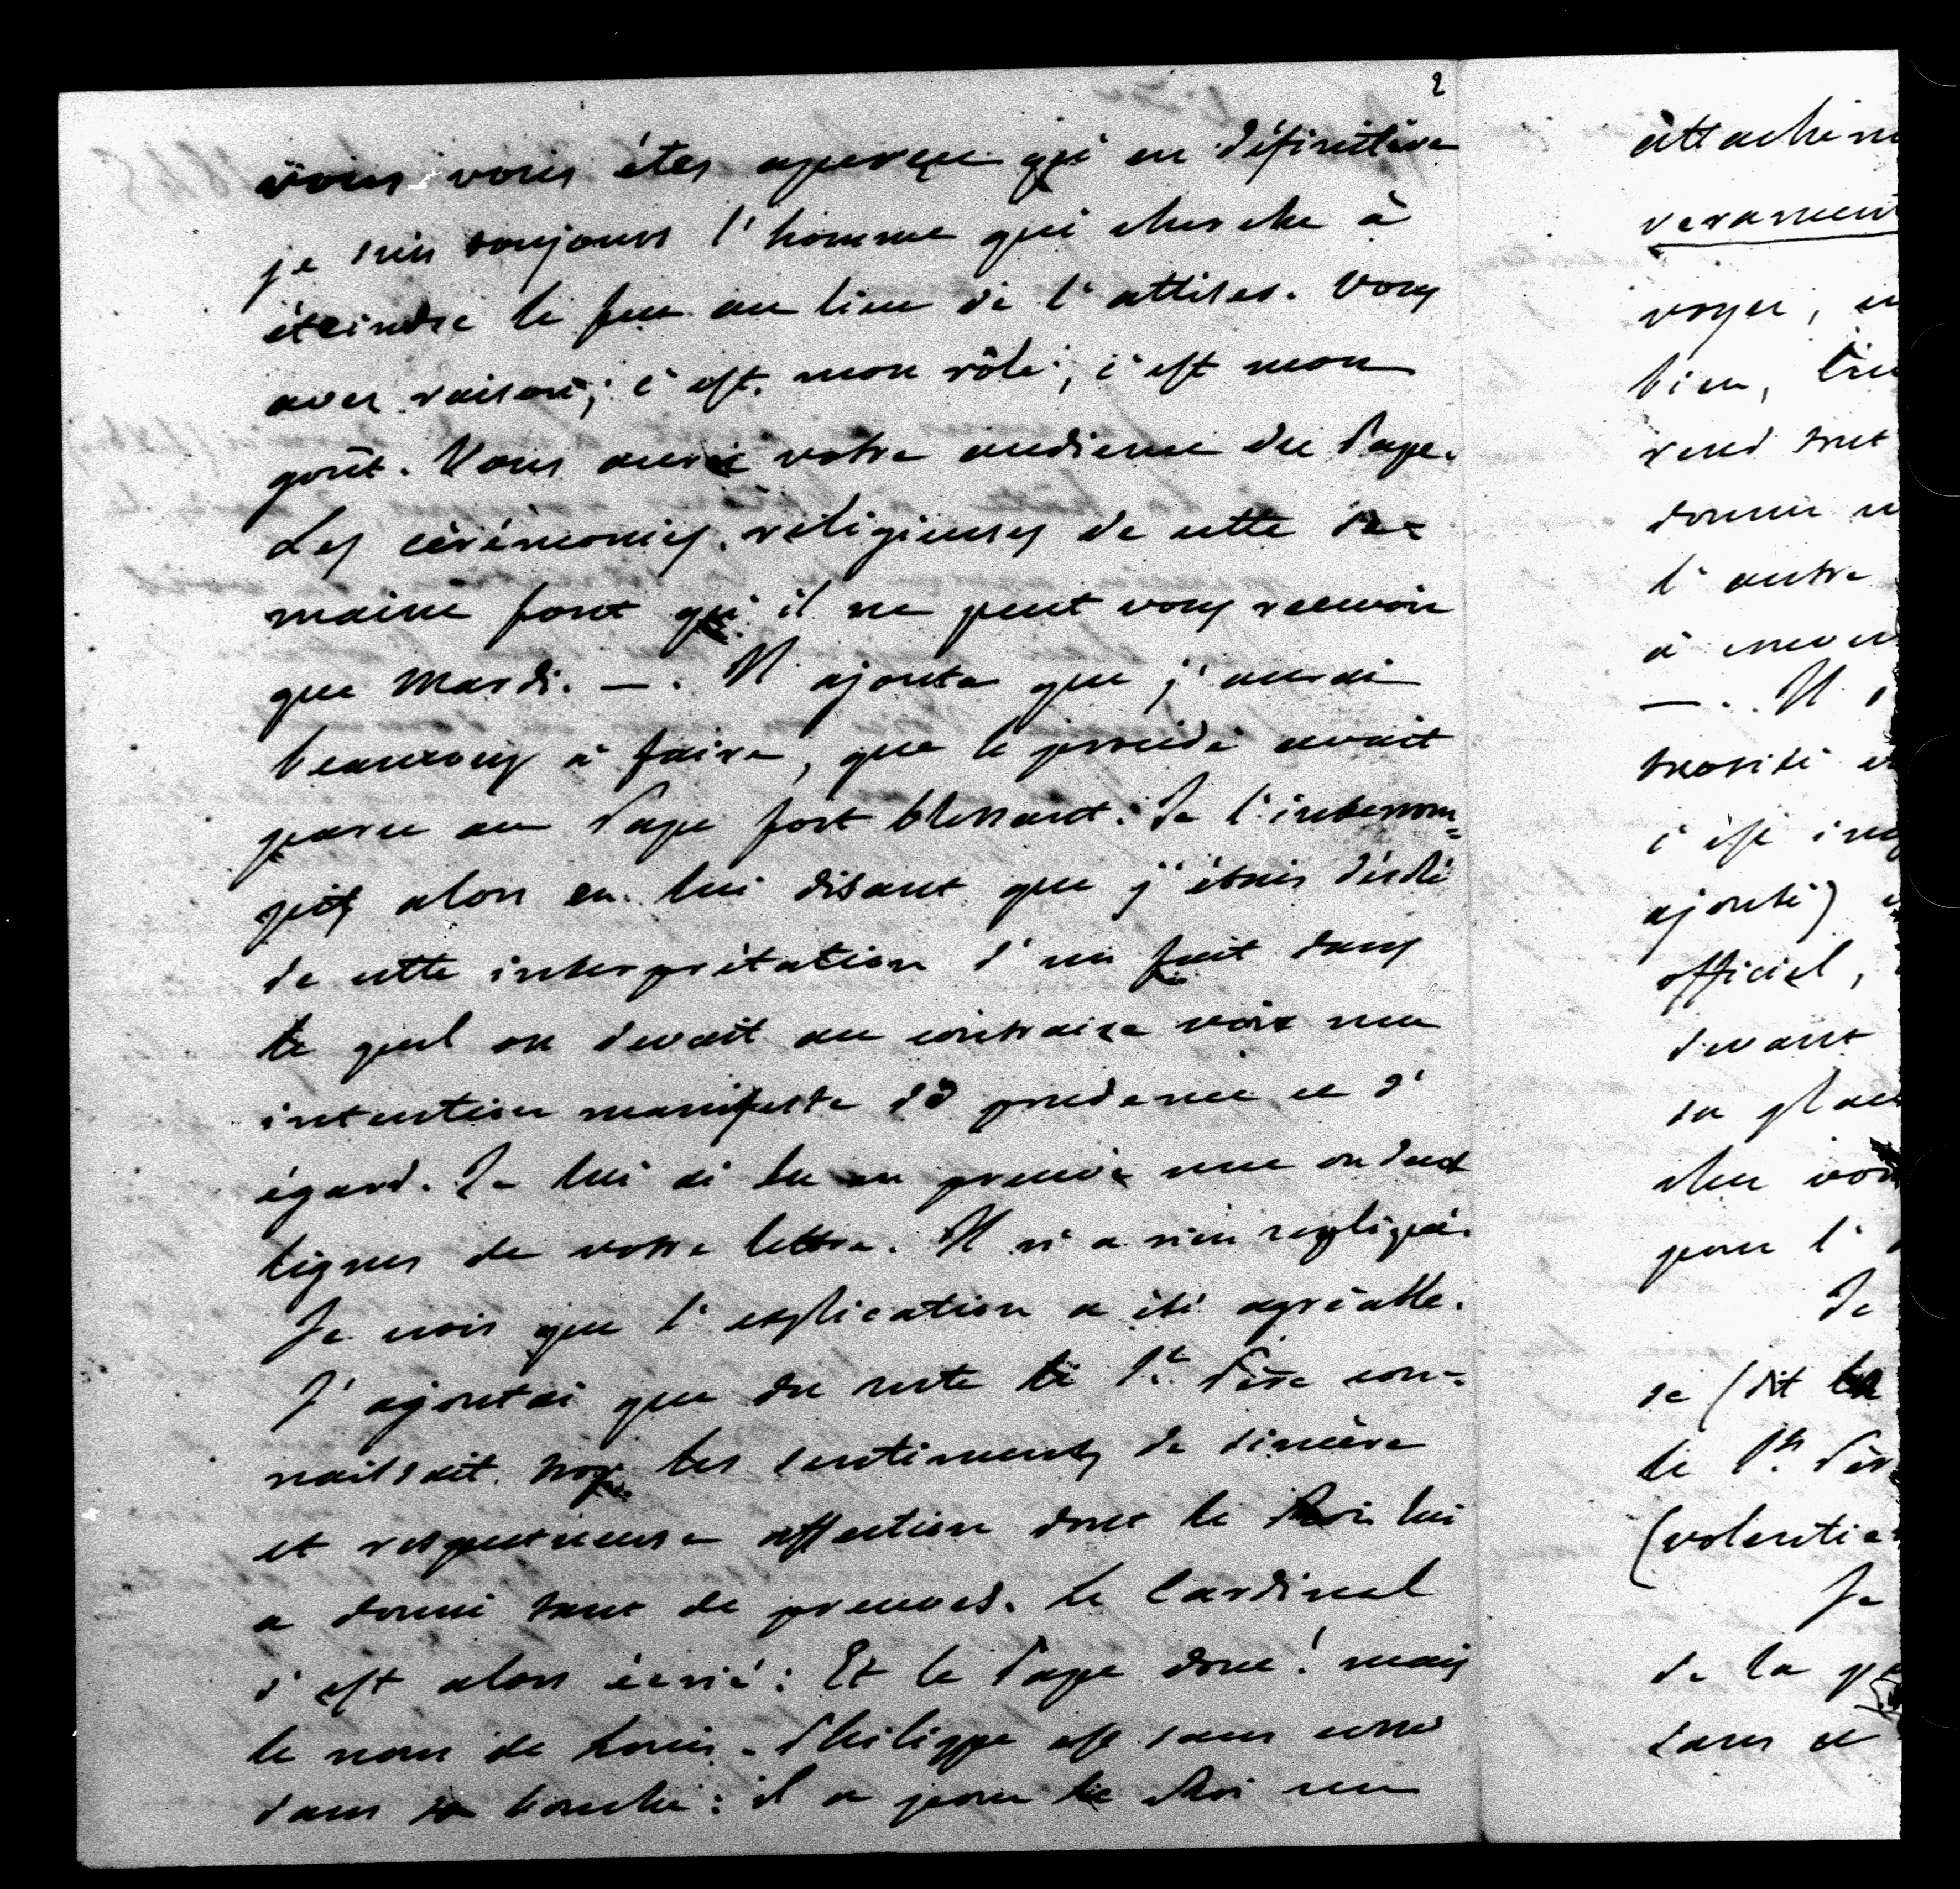 2
vous vous êtes aperçu qu'en définitive
je suis toujours l'homme qui cherche à
éteindre le feu au lieu de l'attiser. Vous
avez raison; c'est mon rôle, c'est mon
goût. Vous aurez votre audience du Pape.
Les cérémonies religieuses de cette se=
maine font qu'il ne peut vous recevoir
que Mardi. —. Il ajouta que j'aurai
beaucoup à faire, que le procédé avait
paru au Pape fort blessant. Je l'interrom=
pis alors en lui disant que j'étais désolé
de cette interprétation d'un fait dans
le quel on devait au contraire voir une
intention manifeste de prudence et d'
égard. Je lui ai lu en preuve une ou deux
lignes de votre lettre. Il n'a rien repliqué.
Je crois que l'explication a été agréable.
J'ajoutai que du reste le St. Père con=
naissait trop les sentiments de sincère
et respectueuse affection dont le Roi lui
a donné tant de preuves. Le Cardinal
s'est alors écrié: Et le Pape donc! mais
le nom de Louis-Philippe est sans cesse
dans sa bouche: il a pour le Roi un
attachem
verament
voyez, en
bien,
rend tout
donner u
l'autre
à
—. Il
motité
c'est
ajouté)
officiel,
devant
sa place
chez vou
pour l'
Je
se (dit le
le St. Pèr
(volentie
Je
de la
sans